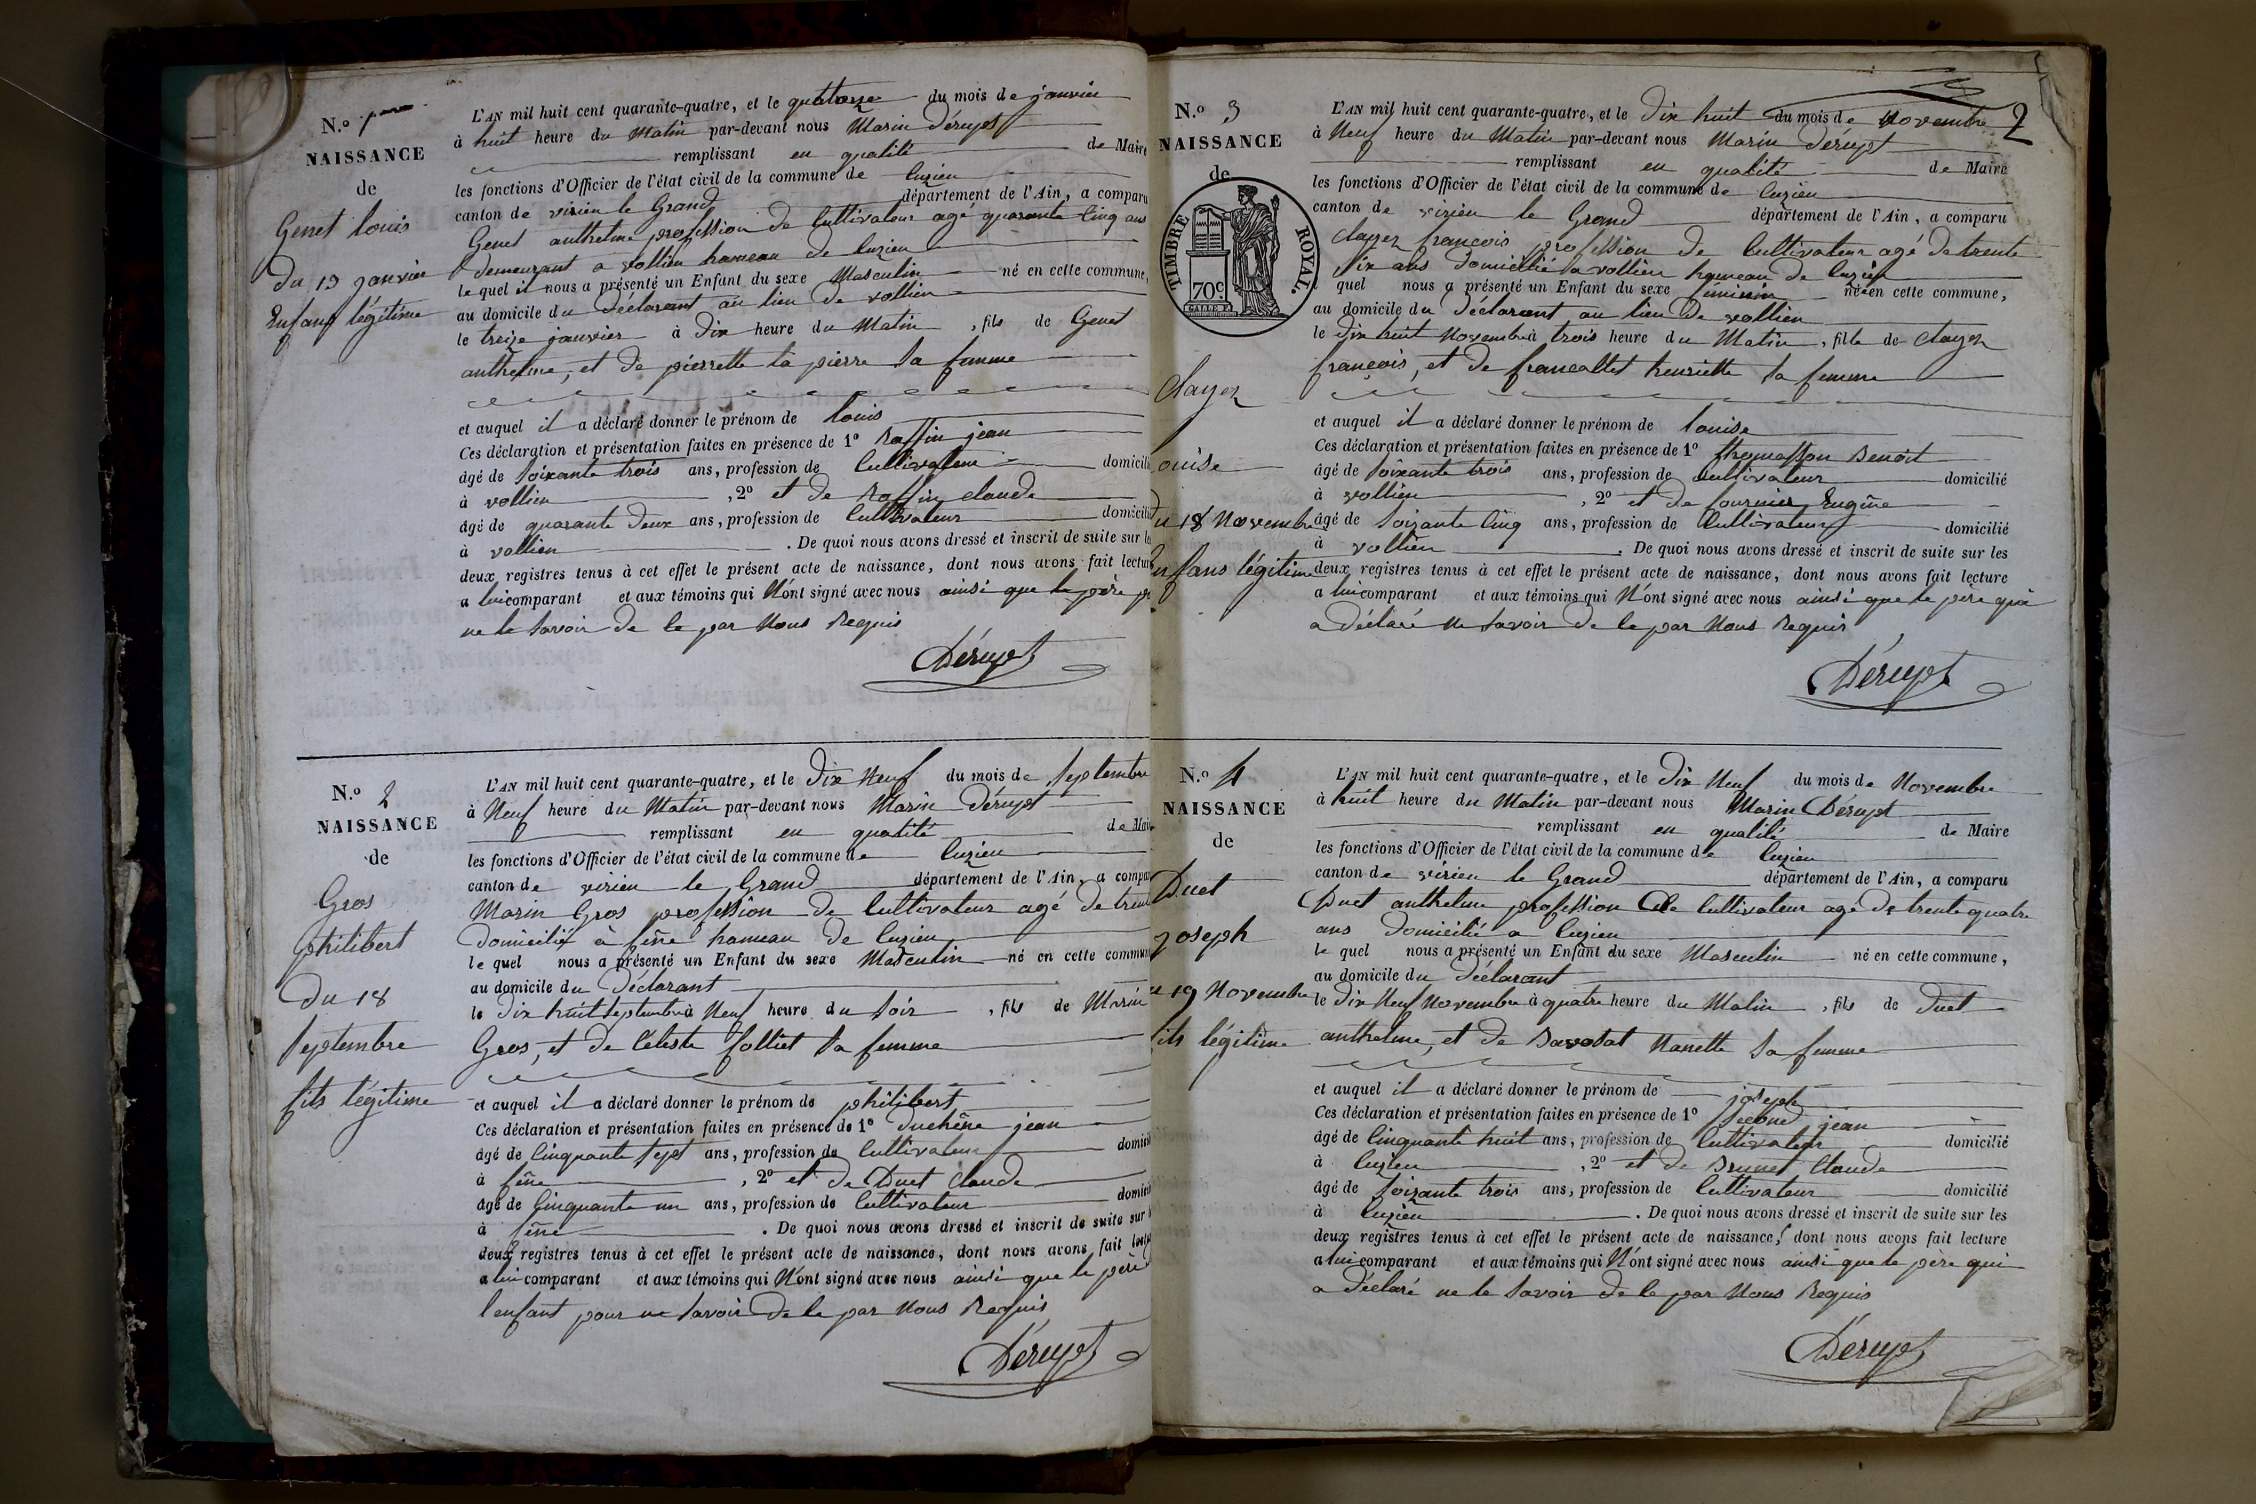 N.º 1er
NAISSANCE
de
Genet louis
du 13 janvier
Enfant légitime
L'AN mil huit cent quarante-quatre, et le quatorze du mois de janvier
à huit heure du Matin par-devant nous Marin Dérupt
remplissant en qualité de Maire
les fonctions d'Officier de l'état civil de la commune de Cuzieu
canton de virieu le Grand département de l'Ain, a comparu
Genet anthelme profession de Cultivateur agé quarante Cinq ans
demeurant a vollien hameau de Cuzieu
le quel il nous a présenté un Enfant du sexe Masculin né en cette commune,
au domicile du Déclarant au lieu de vollien
le treize janvier à Dix heure du Matin, fils de Genet
anthelme, et de pierrette la pierre Sa femme
et auquel il a déclaré donner le prénom de louis
Ces déclaration et présentation faites en présence de 1º Raffin jean
âgé de Soixante trois ans, profession de Cultivateur domicili
à vollien, 2º et de Raffin claude
âgé de quarante Deux ans, profession de Cultivateur domicili
à vollien. De quoi nous avons dressé et inscrit de suite sur le
deux registres tenus à cet effet le présent acte de naissance, dont nous avons fait lectur
a lui comparant et aux témoins qui N'ont signé avec nous ainsi que le père
ne le Savoir de le par Nous Requis
Dérupt
N.º 2
NAISSANCE
de
Gros
philibert
Du 18
Septembre
fils légitime
L'AN mil huit cent quarante-quatre, et le Dix Neuf du mois de Septembre
à Neuf heure du Matin par-devant nous Marin Dérupt
remplissant en qualité de Mai
les fonctions d'Officier de l'état civil de la commune de Cuzieu
canton de virieu le Grand département de l'Ain, a compa
Marin Gros profession de Cultivateur agé de tren
Domicilié à fêne hameau de Cuzieu
le quel nous a présenté un Enfant du sexe Masculin né en cette commun
au domicile du Déclarant
le Dix huit Septembre à Neuf heure du Soir, fils de Marin
Gros, et de Céleste folliet Sa femme
et auquel il a déclaré donner le prénom de philibert
Ces déclaration et présentation faites en présence de 1º Duchêne jean
âgé de Cinquante Sept ans, profession de Cultivateur domici
à fêne, 2º et de Duet Claude
âgé de Cinquante un ans, profession de Cultivateur domici
à fêne. De quoi nous avons dressé et inscrit de suite sur
deux registres tenus à cet effet le présent acte de naissance, dont nous avons fait
a lui comparant et aux témoins qui N'ont signé avec nous ainsi que le père
l'enfant pour ne Savoir de le par Nous Requis
Dérupt
2
N.º 3
NAISSANCE
de
TIMBRE ROYAL.
70c
Clayez
ouise
du 18 Novembre
enfans légitime
L'AN mil huit cent quarante-quatre, et le Dix huit du mois de Novembre
à Neuf heure du Matin par-devant nous Marin Dérupt
remplissant en qualité de Maire
les fonctions d'Officier de l'état civil de la commune de Cuzieu
canton de virieu le Grand département de l'Ain, a comparu
Clayez françois profession de Cultivateur agé de trente
Six ans domicilié a vollien hameau de Cuzieu
quel nous a présenté un Enfant du sexe féminin né en cette commune,
au domicile du Déclarant au lieu de vollien
le Dix huit Novembre à trois heure du Matin, fille de Clayez
françois, et de francallet henriette Sa femme
et auquel il a déclaré donner le prénom de louise
Ces déclaration et présentation faites en présence de 1º thomasson Benoit
âgé de Soixante trois ans, profession de Cultivateur domicilié
à vollien, 2º et de fournier Eugène
âgé de Soixante Cinq ans, profession de Cultivateur domicilié
à vollien. De quoi nous avons dressé et inscrit de suite sur les
deux registres tenus à cet effet le présent acte de naissance, dont nous avons fait lecture
a lui comparant et aux témoins qui N'ont signé avec nous ainsi que le père qui
a déclaré ne Savoir de le par Nous Requis
Dérupt
N.º 4
NAISSANCE
de
Duet
joseph
19 Novembre
fils légitime
L'AN mil huit cent quarante-quatre, et le Dix Neuf du mois de Novembre
à huit heure du Matin par-devant nous Marin Dérupt
remplissant en qualité de Maire
les fonctions d'Officier de l'état civil de la commune de Cuzieu
canton de virieu le Grand département de l'Ain, a comparu
Duet anthelme profession de Cultivateur agé de trente quatre
ans domicilié a Cuzieu
le quel nous a présenté un Enfant du sexe Masculin né en cette commune,
au domicile du Déclarant
le Dix Neuf Novembre à quatre heure du Matin, fils de Duet
anthelme, et de Savobat Nanette Sa femme
et auquel il a déclaré donner le prénom de joseph
Ces déclaration et présentation faites en présence de 1º Second jean
âgé de Cinquante huit ans, profession de Cultivateur domicilié
à Cuzieu, 2º et de Brunet Claude
âgé de Soixante trois ans, profession de Cultivateur domicilié
à Cuzieu. De quoi nous avons dressé et inscrit de suite sur les
deux registres tenus à cet effet le présent acte de naissance, dont nous avons fait lecture
a lui comparant et aux témoins qui N'ont signé avec nous ainsi que le père qui
a déclaré ne le Savoir de le par Nous Requis
Dérupt